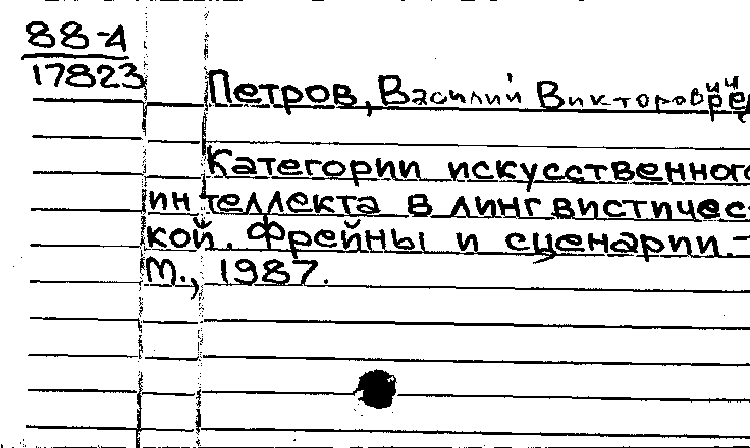 88-4
17823
Петров, Василий Викторович, ре
Категории искусственного
интеллекта в лингвистичес-
кой. Фреймы и сценарии.-
М., 1987.